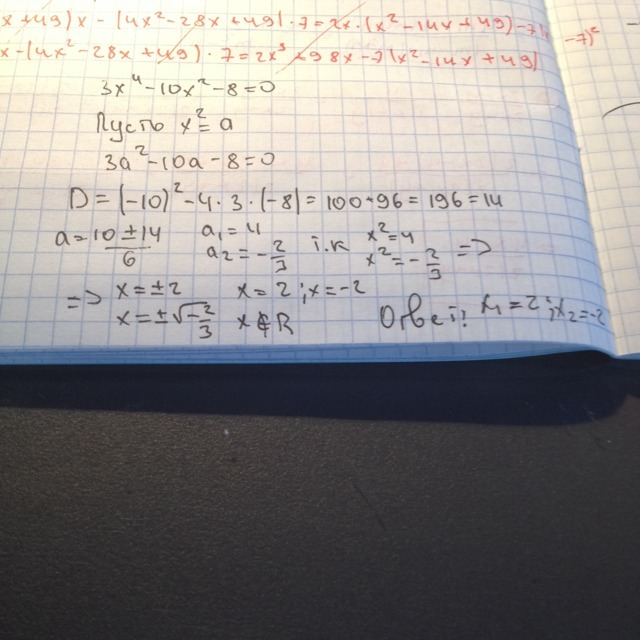 x+49)x - (4x²-28x+49)·7=2x·(x²-14x+49)-7(
x-(4x²-28x+49)·7=2x³+98x-7(x²-14x+49)
-7)²
3x⁴-10x²-8=0
Пусть x²=a
3a²-10a-8=0
D=(-10)²-4·3·(-8)=100+96=196=14
a=10±14/6 a₁=4 a₂=-2/3 т.к x²=4 x²=-2/3 =>
=> x=±2 x=2; x=-2
x=±√-2/3 x∉R Ответ: x₁=2; x₂=-2